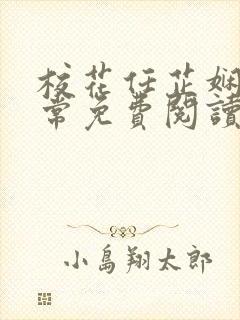 校花任芷娴
常免費閱讀
小島翔太郎